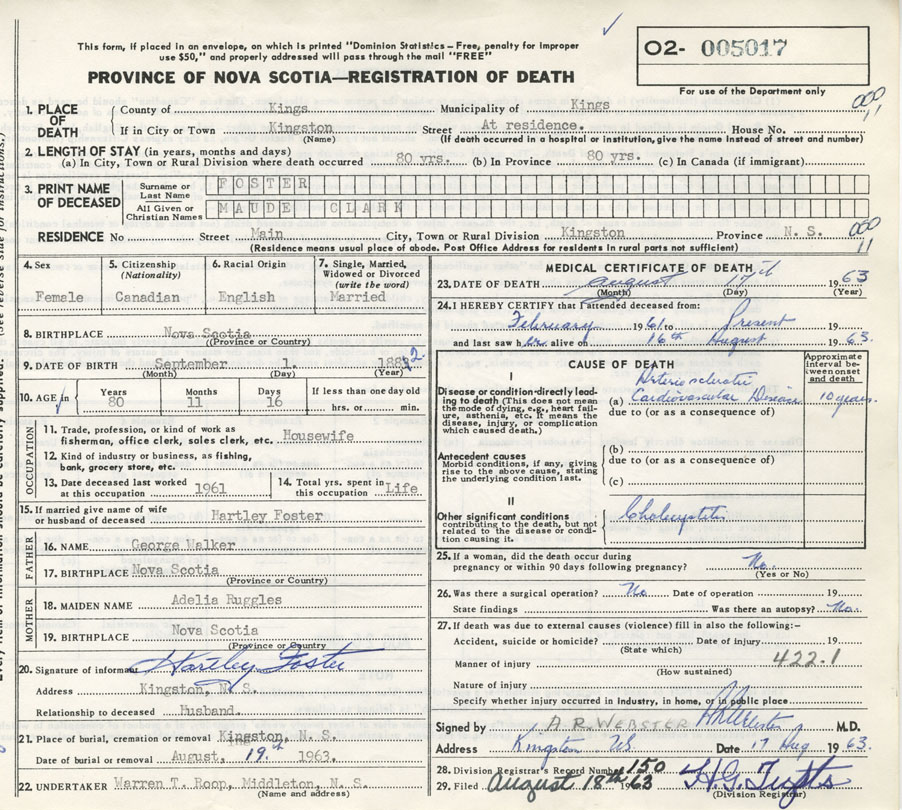 This form, if placed in an envelope, on which is printed "Dominion Statistics – Free, penalty for improper
use $50," and properly addressed will pass through the mail "FREE"
PROVINCE OF NOVA SCOTIA—REGISTRATION OF DEATH
O2- 005017
For use of the Department only
1. PLACE OF DEATH
County of Kings Municipality of Kings
If in City or Town Kingston Street At residence. House No.
(Name) (If death occurred in a hospital or institution, give the name instead of street and number)
000
11
2. LENGTH OF STAY (in years, months and days)
(a) In City, Town or Rural Division where death occurred 80 yrs. (b) In Province 80 yrs. (c) In Canada (if immigrant)
3. PRINT NAME OF DECEASED
Surname or Last Name FOSTER
All Given or Christian Names MAUDE CLARK
RESIDENCE No Street Main City, Town or Rural Division Kingston Province N. S.
(Residence means usual place of abode. Post Office Address for residents in rural parts not sufficient)
000
11
4. Sex
Female
5. Citizenship
(Nationality)
Canadian
6. Racial Origin
English
7. Single, Married, Widowed or Divorced
(write the word)
Married
8. BIRTHPLACE Nova Scotia
(Province or County)
9. DATE OF BIRTH September 1. 188 2
(Month) (Day) (Year)
10. AGE in
Years Months Days If less than one day old
80 11 16 hrs. or min.
OCCUPATION
11. Trade, profession, or kind of work as
fisherman, office clerk, sales clerk, etc. Housewife
12. Kind of industry or business, as fishing,
bank, grocery store, etc.
13. Date deceased last worked
at this occupation 1961
14. Total yrs. spent in
this occupation Life
15. If married give name of wife
or husband of deceased Hartley Foster
FATHER
16. NAME George Walker
17. BIRTHPLACE Nova Scotia
(Province or Country)
MOTHER
18. MAIDEN NAME Adelia Ruggles
19. BIRTHPLACE Nova Scotia
(Province or Country
20. Signature of informant Hartley Foster
Address Kingston, N. S.
Relationship to deceased Husband.
21. Place of burial, cremation or removal Kingston, N. S.
Date of burial or removal August, 19th 1963.
22. UNDERTAKER Warren T. Roop, Middleton, N. S.
(Name and address)
MEDICAL CERTIFICATE OF DEATH
23. DATE OF DEATH August 17th 1963
(Month) (Day) (Year)
24. I HEREBY CERTIFY that I attended deceased from:
February 1961 to Present 19
and last saw her alive on 16th August 1963.
CAUSE OF DEATH
Approximate interval between onset and death
I
Disease or condition directly leading to death (This does not mean the mode of dying, e.g., heart failure, asthenia, etc. It means the disease, injury, or complication which caused death.)
(a) Arteriosclerotic Cardiovascular Disease 10 years.
due to (or as a consequence of)
Antecedent causes
Morbid conditions, if any, giving rise to the above cause, stating the underlying condition last.
(b)
due to (or as a consequence of)
(c)
II
Other significant conditions
contributing to the death, but not related to the disease or condition causing it.
Cholecystitis
25. If a woman, did the death occur during
pregnancy or within 90 days following pregnancy? No
(Yes or No)
26. Was there a surgical operation? No Date of operation 19
State findings Was there an autopsy? No.
27. If death was due to external causes (violence) fill in also the following:-
Accident, suicide or homicide? Date of injury 19
(State which)
Manner of injury 422.1
(How sustained)
Nature of injury
Specify whether injury occurred in Industry, in home, or in public place
Signed by A. R. WEBSTER M.D.
Address Kingston NS. Date 17 Aug 1963.
28. Division Registrar's Record Number 150
29. Filed August 18th 1963 H.G. Tufts
(Division Registrar)